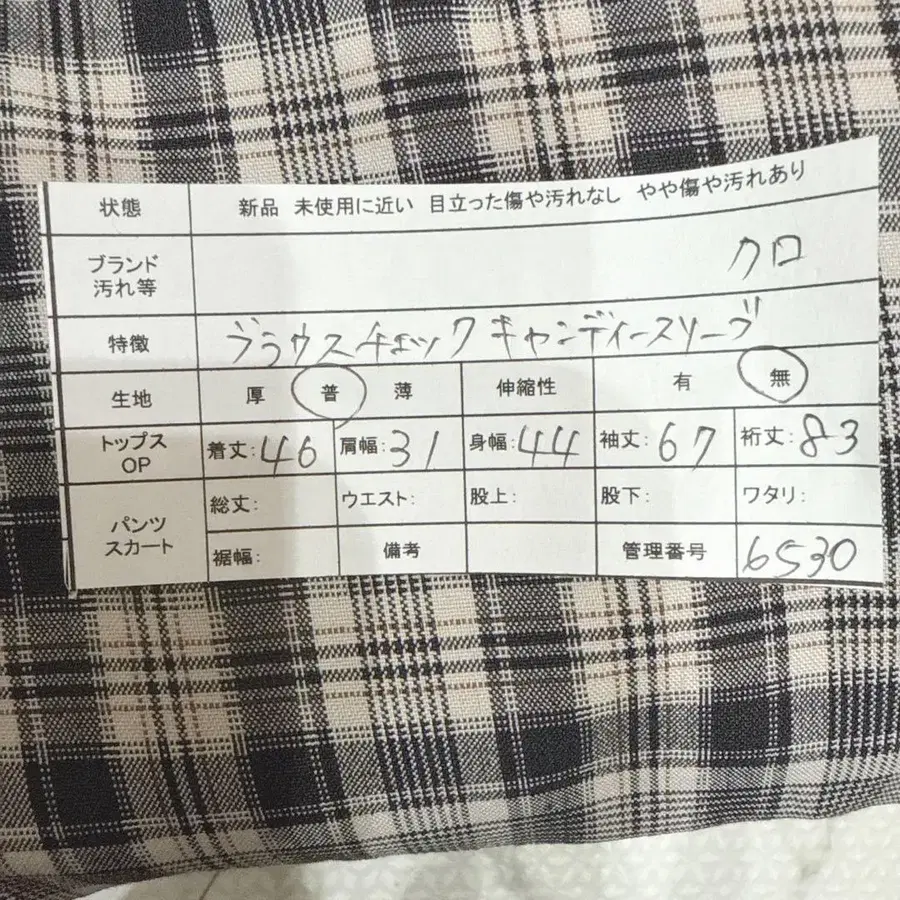 状態 新品 未使用に近い 目立った傷や汚れなし やや傷や汚れあり
ブランド
汚れ等
クロ
特徴 ブラウスチェックキャンディースリーブ
生地 厚 普 薄 伸縮性 有 無
トップス
OP
着丈:46 肩幅:31 身幅:44 袖丈:67 裄丈:83
パンツ
スカート
総丈: ウエスト: 股上: 股下: ワタリ:
裾幅: 備考 管理番号 6530